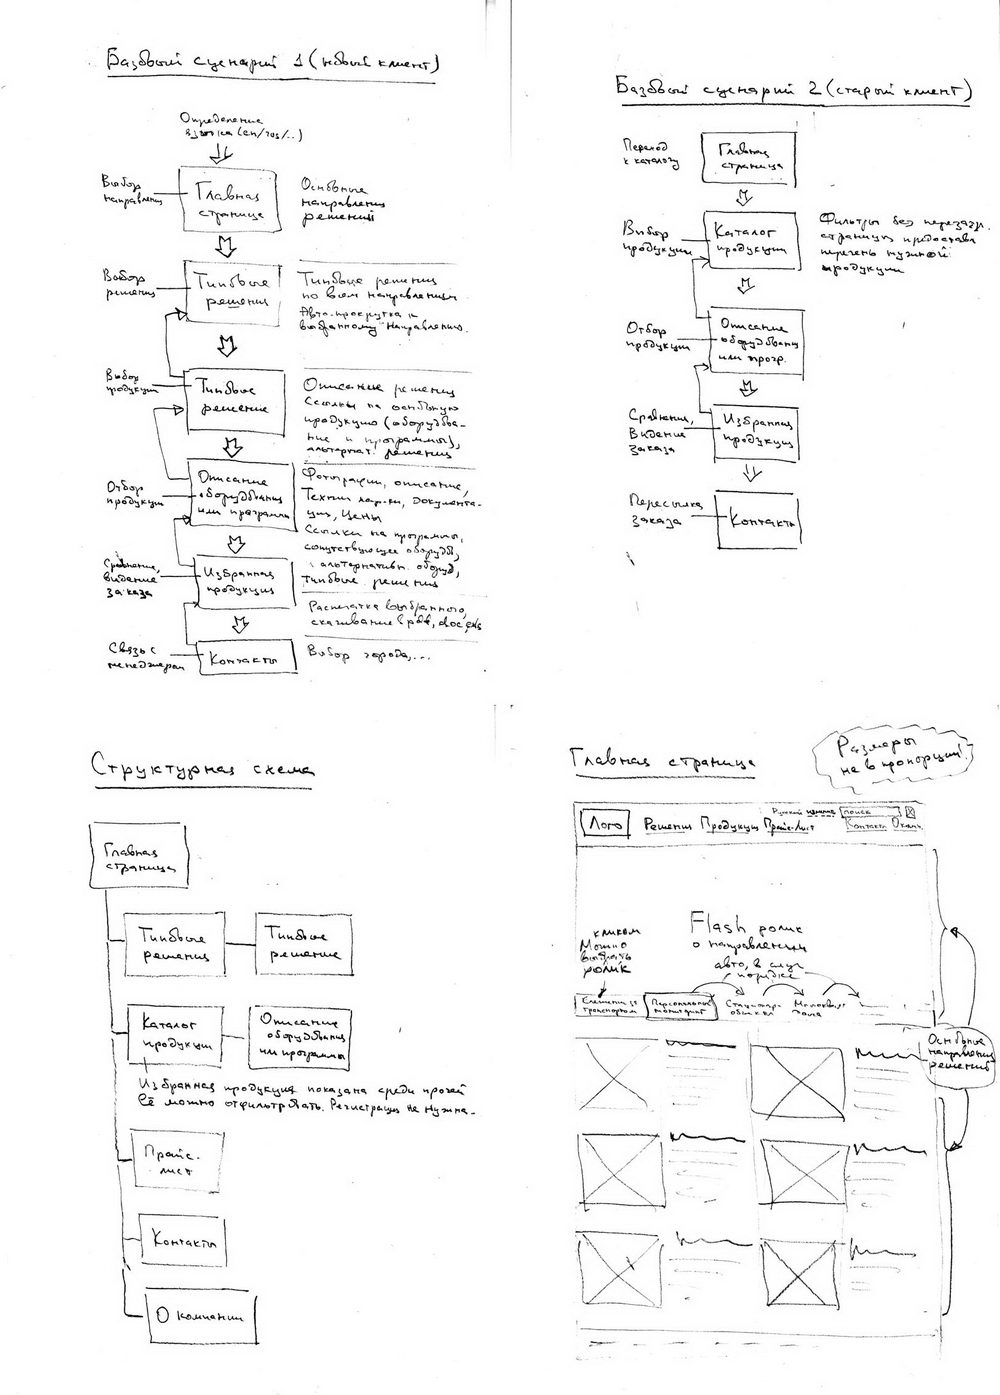 Базовый сценарий 1 (новый клиент)
Определение
языка (en/rus/..)
Выбор
направления
Главная
страница
Основные
направления
решений
Выбор
решения
Типовые
решения
Типовые решения
по всем направлениям.
Авто-прокрутка к
выбранному направлению.
Выбор
продукции
Типовое
решение
Описание решения
Ссылки на основную
продукцию (оборудова-
ние и программы),
альтернат. решения
Отбор
продукции
Описание
оборудования
или программы
Фотографии, описание,
Технич. хар-ки, документа-
ция, цены
Ссылки на программы,
сопутствующее оборуд.,
альтернативн. оборуд,
типовые решения
Сравнение,
видение
заказа
Избранная
продукция
Распечатка выбранного,
скачивание в pdf, doc,
Связь с
менеджером
Контакты
Выбор города,...
Базовый сценарий 2 (старый клиент)
Переход
к каталогу
Главная
страница
Выбор
продукции
Каталог
продукции
Фильтры без перезагр.
страниц
перечень нужной
продукции
Отбор
продукции
Описание
оборудования
или прогр.
Сравнения,
Видение
заказа
Избранная
продукция
Пересылка
заказа
Контакты
Структурная схема
Главная
страница
Типовые
решения
Типовые
решение
Каталог
продукции
Описание
оборудования
или программы
Избранная продукция показана среди прочей
Её можно отфильтровать. Регистрация не нужна.
Прайс-
лист
Контакты
О компании
Главная страница
Размеры
не в пропорций!
Русский поиск
Лого Решения Продукция Прайс-Лист Контакты О комп.
кликом
Можно
выбрать
ролик
Flash ролик
о направлении
авто, в случ
порядке
транспортом
Персональный
мониторинг
Стационар.
объекты
Основные
направления
решений